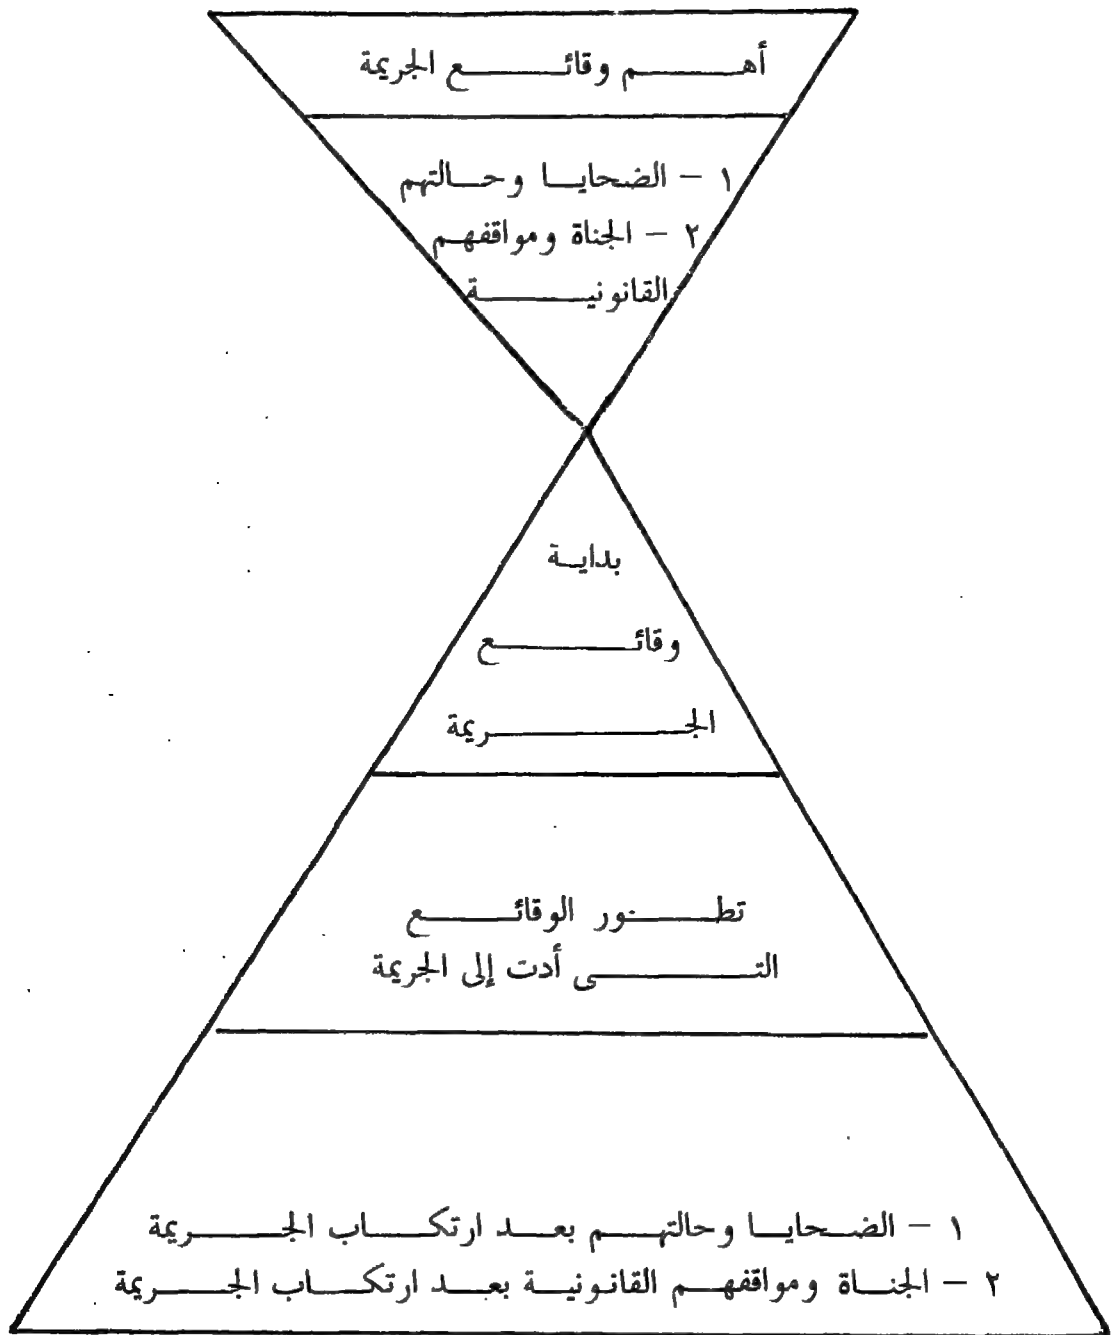 أهم وقائع الجريمة
١ - الضحايا وحالتهم
٢ - الجناة ومواقفهم
القانونية
بداية
وقائع
الجريمة
تطور الوقائع
التى أدت إلى الجريمة
١ - الضحايا وحالتهم بعد ارتكاب الجريمة
٢ - الجناة ومواقفهم القانونية بعد ارتكاب الجريمة